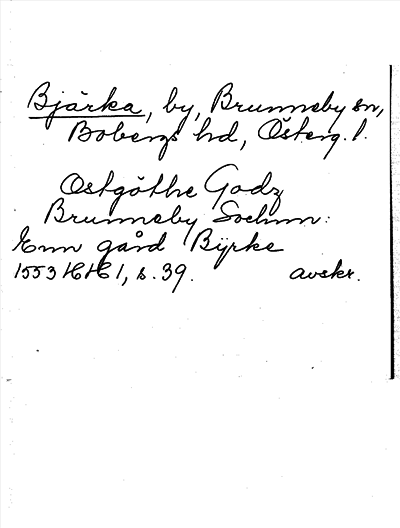 Bjärka, by, Brunneby sn,
Bobergs hd, Österg. l.
Ostgöthe Godz
Brunneby Sochnn:
Enn gård Bÿrke
1553 HH 1, s. 39. avskr.